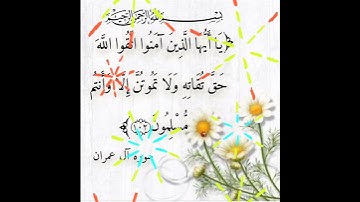 بِسْمِ اللَّهِ الرَّحْمَٰنِ الرَّحِيمِ
﴿يَا أَيُّهَا الَّذِينَ آمَنُوا اتَّقُوا اللَّهَ
حَقَّ تُقَاتِهِ وَلَا تَمُوتُنَّ إِلَّا وَأَنتُم
مُّسْلِمُونَ ﴿١٠٢﴾
سوره آل عمران